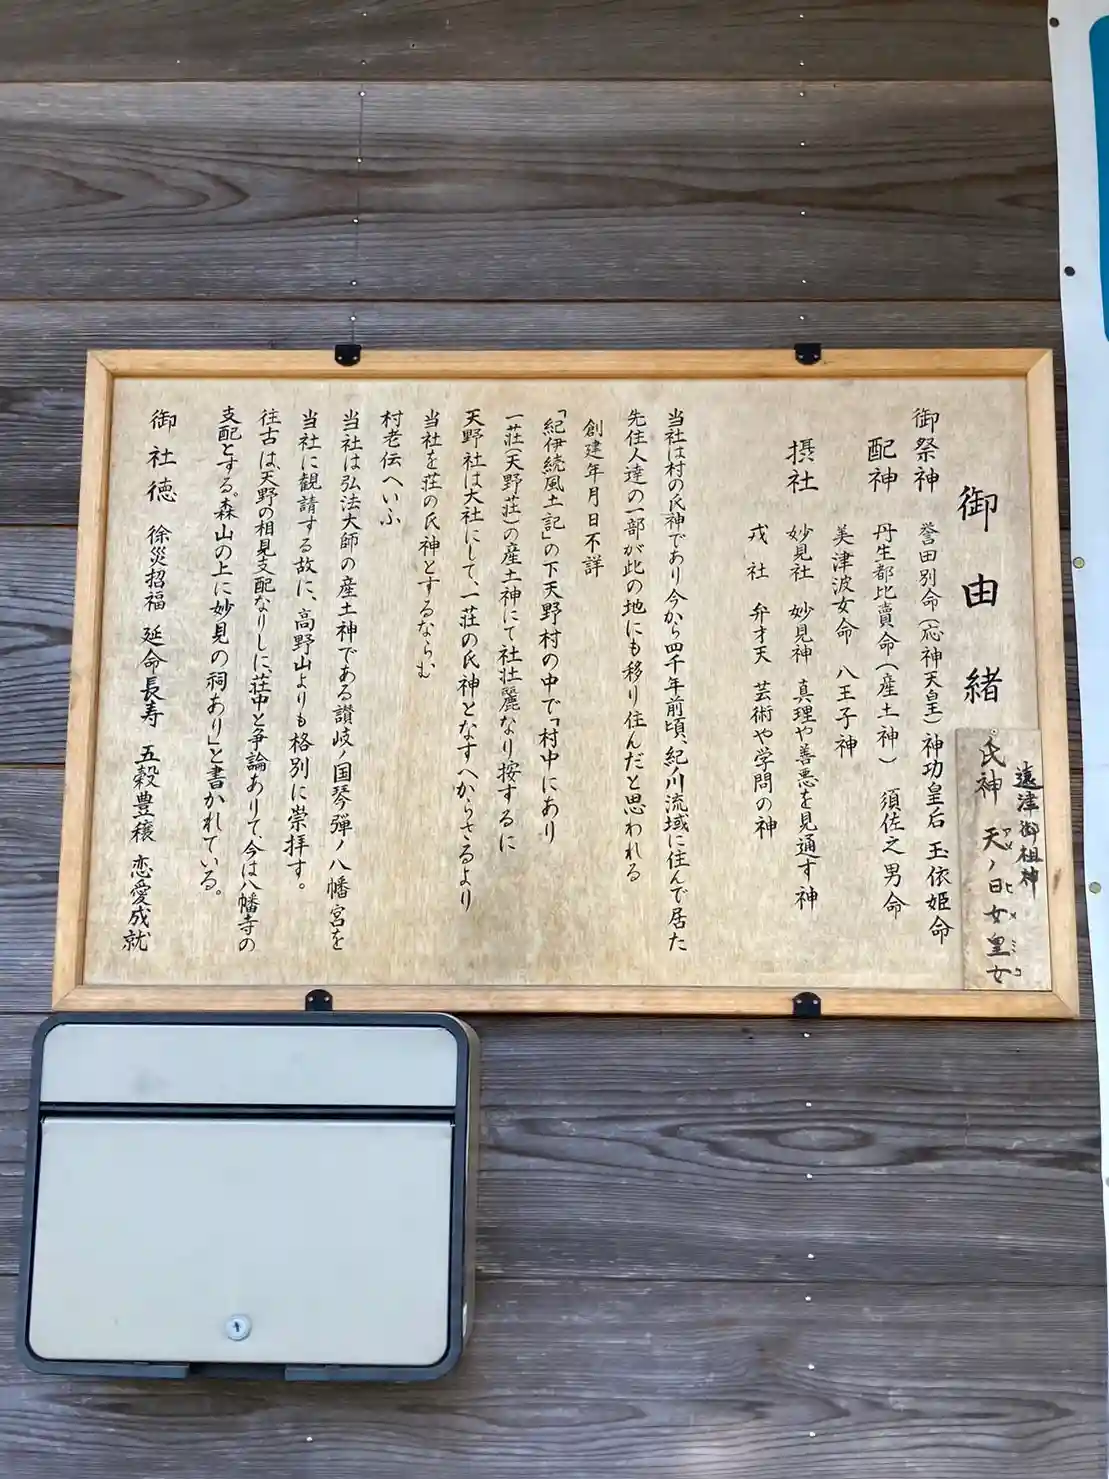 御由緒
遠津御祖神
氏神 天ノ日女皇女
アメ ヒメミコ
御祭神 誉田別命(応神天皇)神功皇后 玉依姫命
配神 丹生都比賣命(産土神) 須佐之男命
美津波女命 八王子神
摂社 妙見社 妙見神 真理や善悪を見通す神
戎社 弁才天 芸術や学問の神
当社は村の氏神であり今から四千年前頃、紀ノ川流域に住んで居た
先住人達の一部が此の地にも移り住んだと思われる
創建年月日不詳
「紀伊続風土記」の下天野村の中で「村中にあり
一荘(天野荘)の産土神にて社壮麗なり按するに
天野社は大社にして、一荘の氏神となすへからさるより
当社を荘の氏神とするならむ
村老伝へいふ
当社は弘法大師の産土神である讃岐ノ国琴弾ノ八幡宮を
当社に観請する故に、高野山よりも格別に崇拝す。
往古は、天野の相見支配なりしに、荘中と争論ありて、今は八幡寺の
支配とする。森山の上に妙見の祠あり」と書かれている。
御社徳 徐災招福 延命長寿 五穀豊穣 恋愛成就